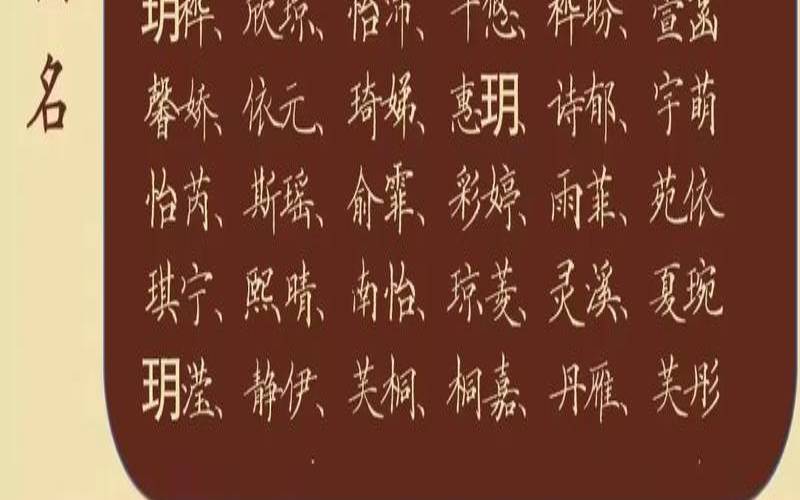 名
玥桦、欣琼、怡沛、千悠、桦盼、萱菡
馨娇、依元、琦娣、惠玥、诗郁、宇萌
怡芮、斯瑶、俞霏、彩婷、雨菲、苑依
琪宁、熙晴、南怡、琼菱、灵溪、夏琬
玥滢、静伊、芙桐、桐嘉、丹雁、芙彤